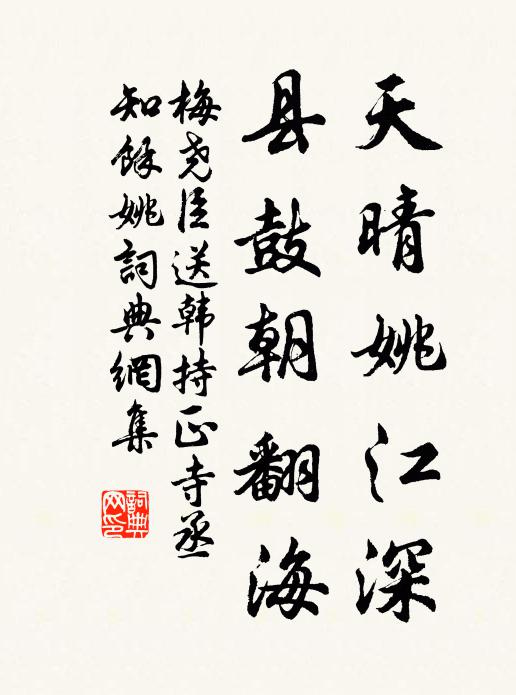 天晴姚江深
县鼓朝翻海
梅尧臣送韩持正寺丞
知馀姚词典網集
詞典
网印